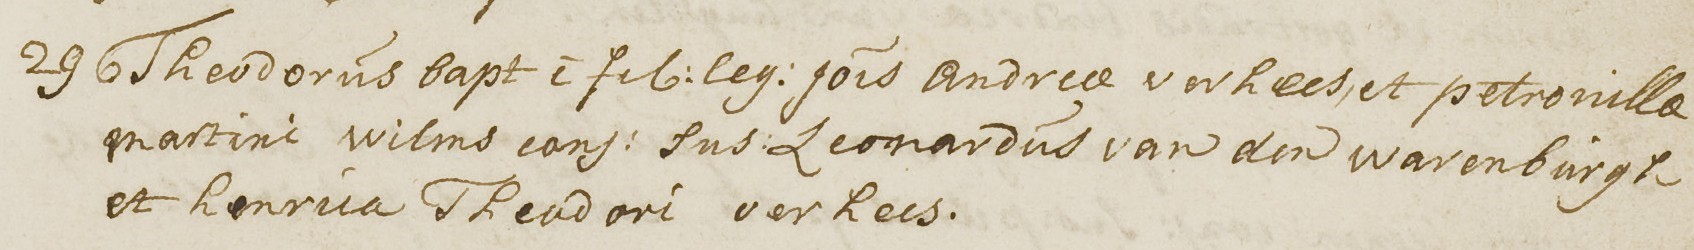 29 Theodorus bapt ē fil: leg: Jōis Andreæ verhees, et petronillæ
martini wilms conj: Sus: Leonardus van den warenburgh
et henrica Theodori verhees.